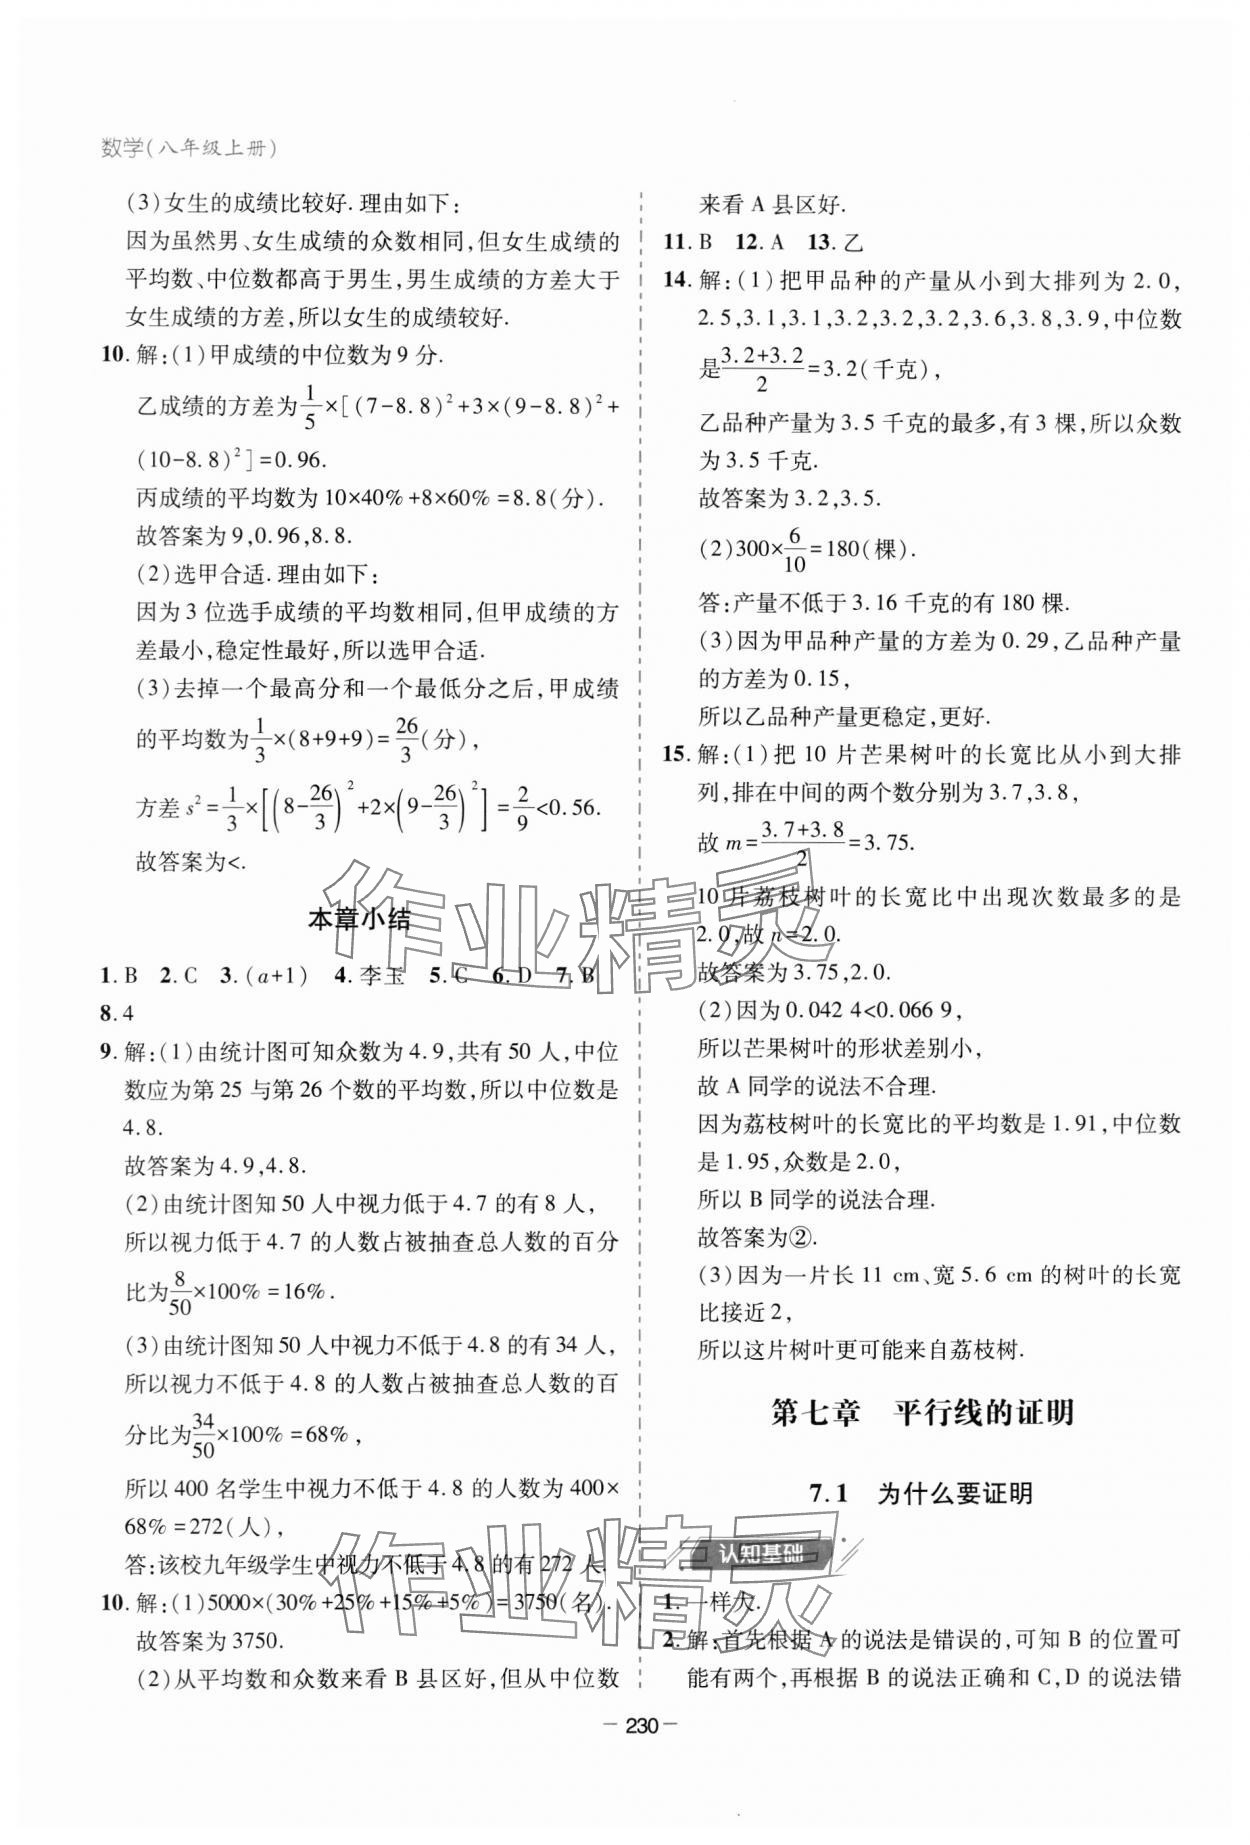 数学(八年级上册)
(3)女生的成绩比较好.理由如下:
因为虽然男、女生成绩的众数相同,但女生成绩的
平均数、中位数都高于男生,男生成绩的方差大于
女生成绩的方差,所以女生的成绩较好.
10.解:(1)甲成绩的中位数为9分.
乙成绩的方差为1/5×[(7-8.8)²+3×(9-8.8)²+
(10-8.8)²]=0.96.
丙成绩的平均数为10×40%+8×60%=8.8(分).
故答案为9,0.96,8.8.
(2)选甲合适.理由如下:
因为3位选手成绩的平均数相同,但甲成绩的方
差最小,稳定性最好,所以选甲合适.
(3)去掉一个最高分和一个最低分之后,甲成绩
的平均数为1/3×(8+9+9)=26/3(分),
方差s²=1/3×[(8-26/3)²+2×(9-26/3)²]=2/9<0.56.
故答案为<.
本章小结
1.B 2.C 3.(a+1) 4.李玉 5.C 6.D 7.B
8.4
9.解:(1)由统计图可知众数为4.9,共有50人,中位
数应为第25与第26个数的平均数,所以中位数是
4.8.
故答案为4.9,4.8.
(2)由统计图知50人中视力低于4.7的有8人,
所以视力低于4.7的人数占被抽查总人数的百分
比为8/50×100%=16%.
(3)由统计图知50人中视力不低于4.8的有34人,
所以视力不低于4.8的人数占被抽查总人数的百
分比为34/50×100%=68%,
所以400名学生中视力不低于4.8的人数为400×
68%=272(人),
答:该校九年级学生中视力不低于4.8的有272人.
10.解:(1)5000×(30%+25%+15%+5%)=3750(名).
故答案为3750.
(2)从平均数和众数来看B县区好,但从中位数
来看A县区好.
11.B 12.A 13.乙
14.解:(1)把甲品种的产量从小到大排列为2.0,
2.5,3.1,3.1,3.2,3.2,3.2,3.6,3.8,3.9,中位数
是(3.2+3.2)/2=3.2(千克),
乙品种产量为3.5千克的最多,有3棵,所以众数
为3.5千克.
故答案为3.2,3.5.
(2)300×6/10=180(棵).
答:产量不低于3.16千克的有180棵.
(3)因为甲品种产量的方差为0.29,乙品种产量
的方差为0.15,
所以乙品种产量更稳定,更好.
15.解:(1)把10片芒果树叶的长宽比从小到大排
列,排在中间的两个数分别为3.7,3.8,
故m=(3.7+3.8)/2=3.75.
10片荔枝树叶的长宽比中出现次数最多的是
2.0,故n=2.0.
故答案为3.75,2.0.
(2)因为0.042 4<0.066 9,
所以芒果树叶的形状差别小,
故A同学的说法不合理.
因为荔枝树叶的长宽比的平均数是1.91,中位数
是1.95,众数是2.0,
所以B同学的说法合理.
故答案为②.
(3)因为一片长11 cm、宽5.6 cm的树叶的长宽
比接近2,
所以这片树叶更可能来自荔枝树.
第七章 平行线的证明
7.1 为什么要证明
认知基础
1.一样大.
2.解:首先根据A的说法是错误的,可知B的位置可
能有两个,再根据B的说法正确和C,D的说法错
-230-
作业精灵
作业精灵